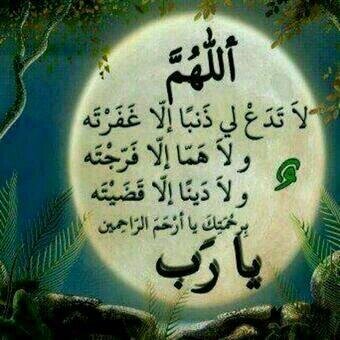 اَللّٰهُمَّ
لاَ تَدَعْ لِي ذَنبًا إلّا غَفَرْتَه
و لاَ هَمّا إلّا فَرّجْتَه
و لاَ دَينًا إلّا قَضَيْتَه
بِرحْمَتِكَ يا أرْحَمَ الرّاحِمين
يا رَب